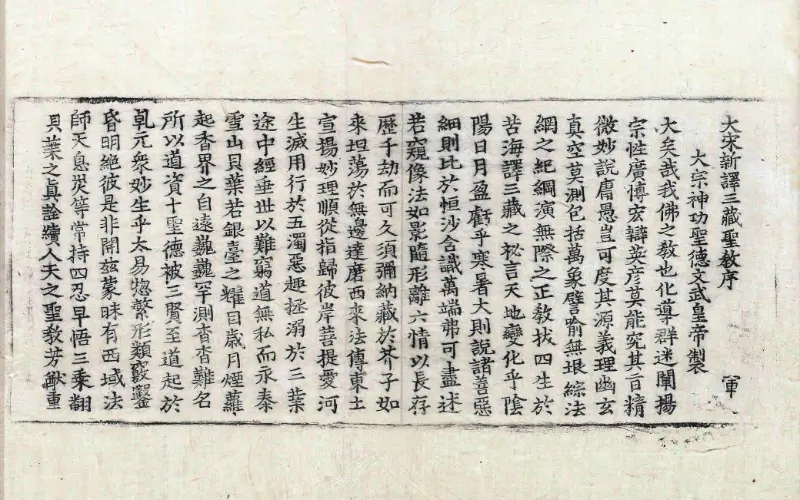 大宋新譯三藏聖教序 軍
大宗神功聖德文武皇帝製
大矣哉我佛之教也化導群迷闡揚
宗性廣博宏辯英彥莫能究其旨精
微妙說庸愚豈可度其源義理幽玄
真空莫測包括萬象譬喻無垠綜法
網之紀綱演無際之正教拔四生於
苦海譯三藏之祕言天地變化乎陰
陽日月盈虧乎寒暑大則說諸善惡
細則比於恒沙含識萬端弗可盡述
若窺像法如影隨形離六情以長存
歷千劫而可久須彌納藏於芥子如
來坦蕩於無邊達磨西來法傳東土
宣揚妙理順從指歸彼岸菩提愛河
生滅用行於五濁惡趣拯溺於三業
途中經垂世以難窮道無私而永泰
雪山貝葉若銀臺之耀目歲月煙蘿
起香界之自遠巍巍罕測杳杳難名
所以道資十聖德被三賢至道起於
乹元衆妙生乎太易惣繁形類竅鑿
昏明絶彼是非開兹蒙昧有西域法
師天息災等常持四忍早悟三乘翻
貝葉之真詮續人天之聖教芳猷重